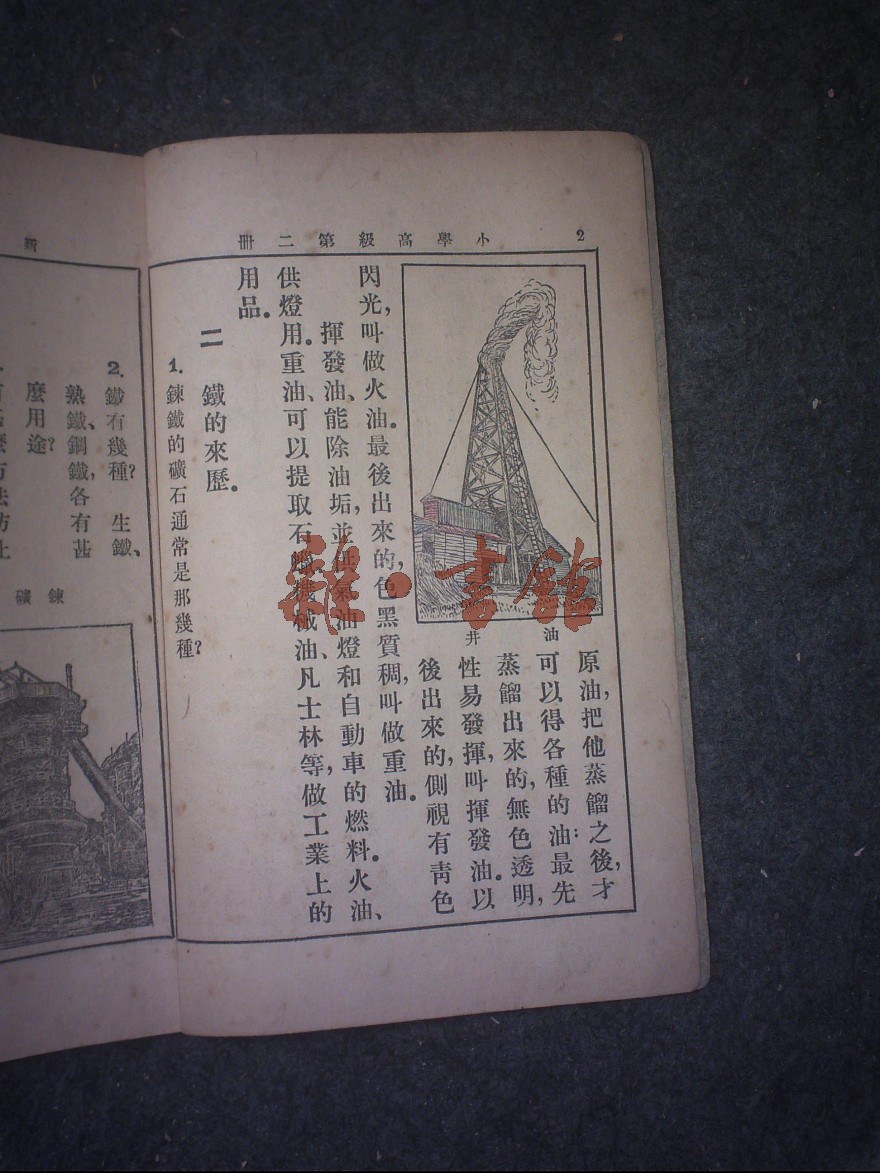 2
小學高級第二冊
油井
原油，把他蒸餾之後，才
可以得各種的油：最先
蒸餾出來的，無色透明，
性易發揮，叫揮發油。以
後出來的，側視有靑色
閃光，叫做火油。最後出來的，色黑質稠，叫做重油。
揮發油、能除油垢，並供氣油燈和自動車的燃料。火油、
供燈用。重油、可以提取石蠟、機械油、凡士林等，做工業上的
用品。
二　鐵的來歷。
1. 鍊鐵的礦石通常是那幾種？
新
2. 鐵有幾種？生鐵、
熟鐵、鋼鐵，各有甚
麼用途？
鍊礦
雜·書館